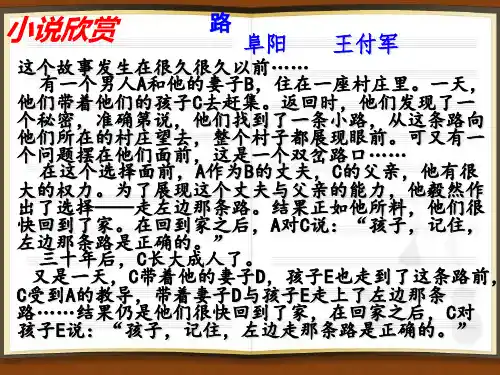 小说欣赏
路
阜阳 王付军
这个故事发生在很久很久以前……
有一个男人A和他的妻子B，住在一座村庄里。一天，
他们带着他们的孩子C去赶集。返回时，他们发现了一
个秘密，准确第说，他们找到了一条小路，从这条路向
他们所在的村庄望去，整个村子都展现眼前。可又有一
个问题摆在他们面前，这是一个双岔路口……
在这个选择面前，A作为B的丈夫，C的父亲，他有很
大的权力。为了展现这个丈夫与父亲的能力，他毅然作
出了选择——走左边那条路。结果正如他所料，他们很
快回到了家。在回到家之后，A对C说：“孩子，记住，
左边那条路是正确的。”
三十年后，C长大成人了。
又是一天，C带着他的妻子D，孩子E也走到了这条路前，
C受到A的教导，带着妻子D与孩子E走上了左边那条
路……结果仍是他们很快回到了家，在回家之后，C对
孩子E说：“孩子，记住，左边走那条路是正确的。”